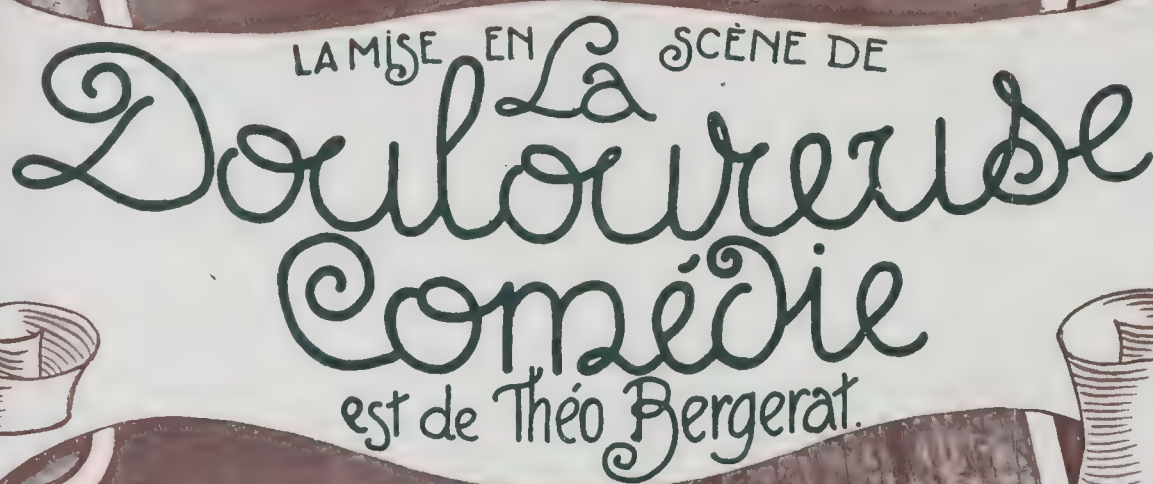 LA MISE EN SCÈNE DE
La
Douloureuse
Comédie
est de Théo Bergerat.